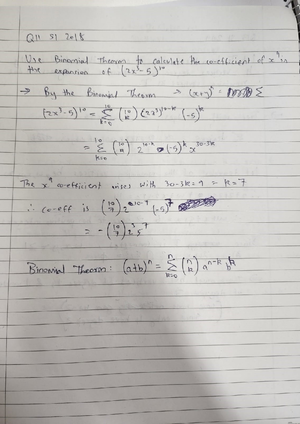 Q11 S1 2018
Use Binomial Theorem to calculate the co-efficient of x^9 in
the expansion of (2x^3 - 5)^10
→ By the Binomial Theorem → (x+y)^n = Σ
(2x^3-5)^10 = Σ_{k=0}^{10} (10 k) (2x^3)^{10-k} (-5)^k
= Σ_{k=0}^{10} (10 k) 2^{10-k} (-5)^k x^{30-3k}
The x^9 co-efficient arises with 30-3k=9 = k=7
∴ co-eff is (10 7) 2^{10-7} (-5)^7
= -(10 7) 2^3 5^7
Binomial Theorem: (a+b)^n = Σ_{k=0}^{n} (n k) a^{n-k} b^k